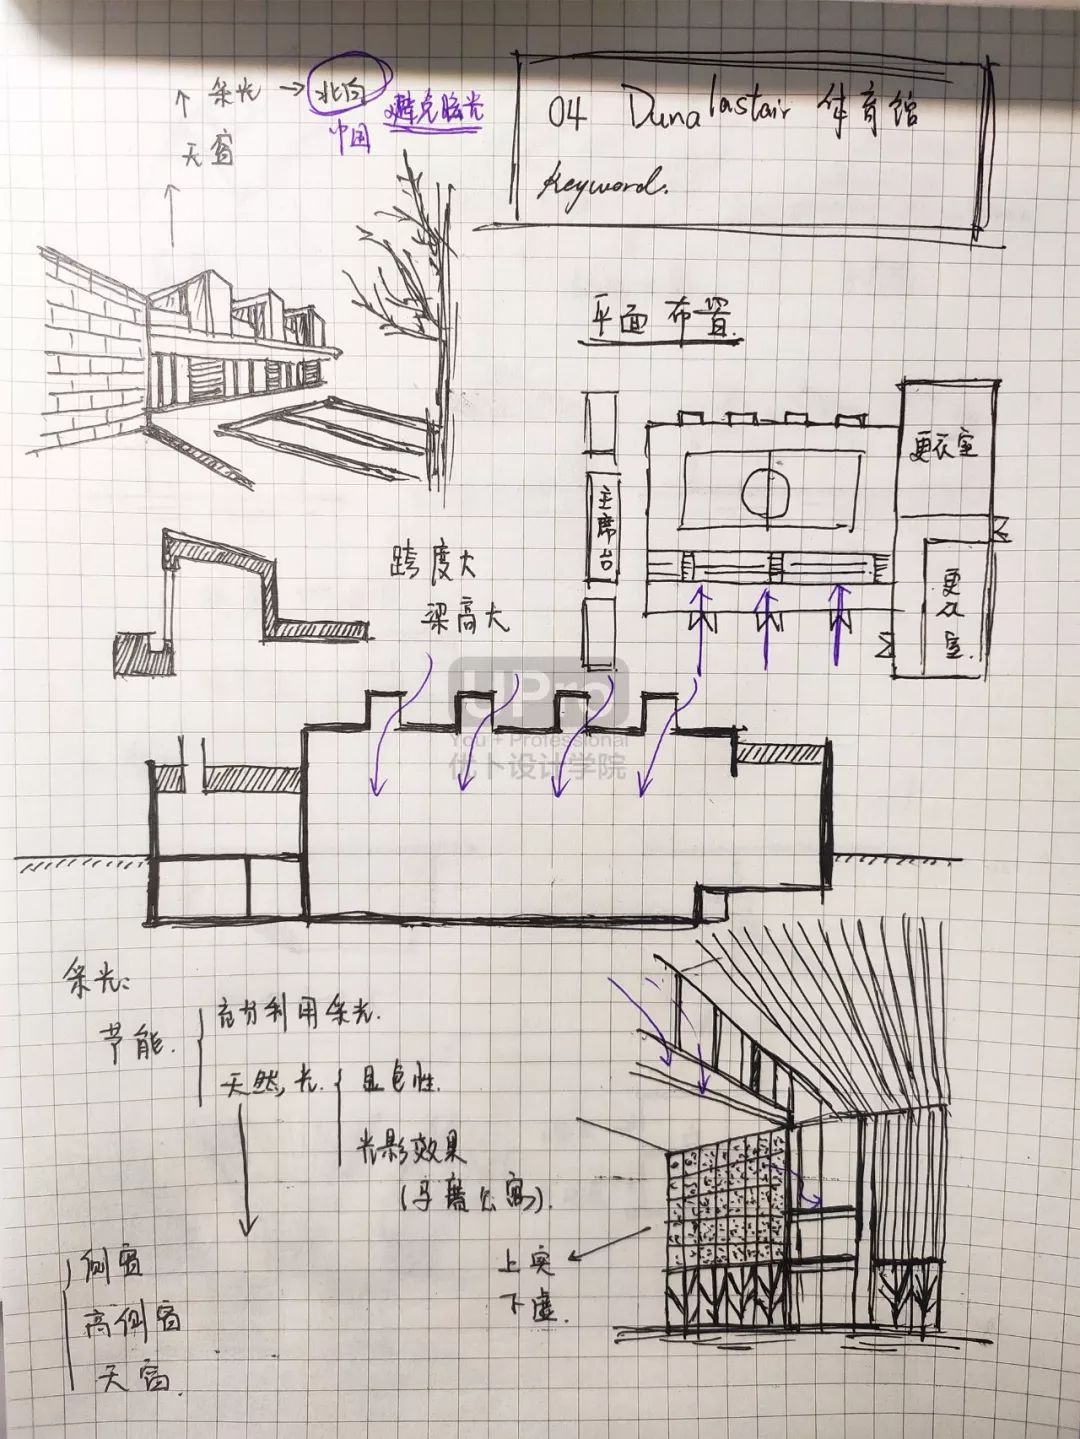 采光 → 北向
中国 避免眩光
天窗
04 Dunalastair 体育馆
Keyword.
平面布置.
更衣室
主席台
更衣室.
跨度大
梁高大
UPro
You + Professional
优卜设计学院
采光:
节能.
充分利用采光.
天然光.
显色性.
光影效果
(马赛公寓).
侧窗
高侧窗
天窗.
上实
下虚.